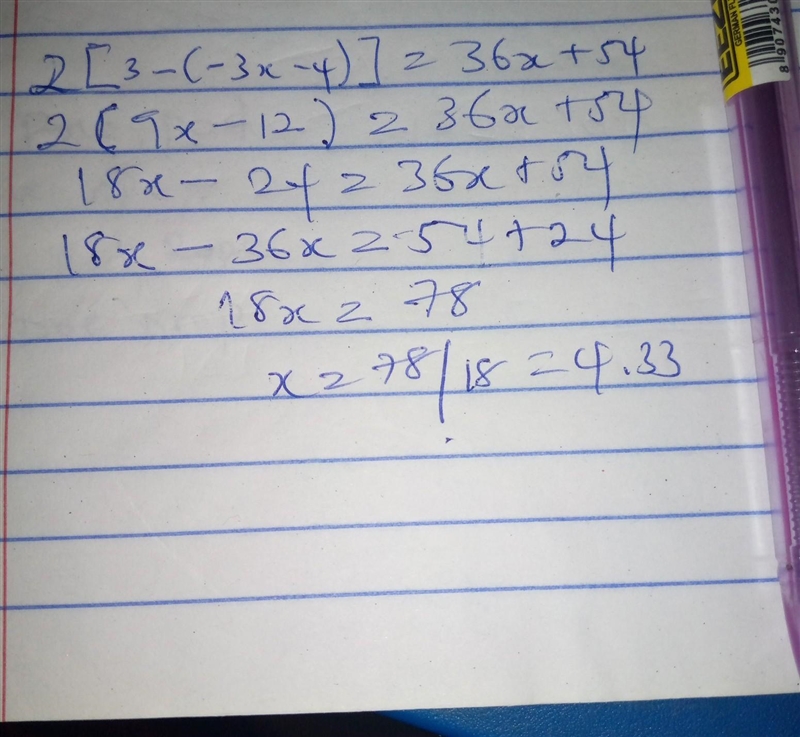 2[3-(-3x-4)] = 36x+54
2(9x-12) = 36x+54
18x - 24 = 36x+54
18x - 36x = 54+24
18x = 78
x = 78/18 = 4.33
GERMAN FL
890743